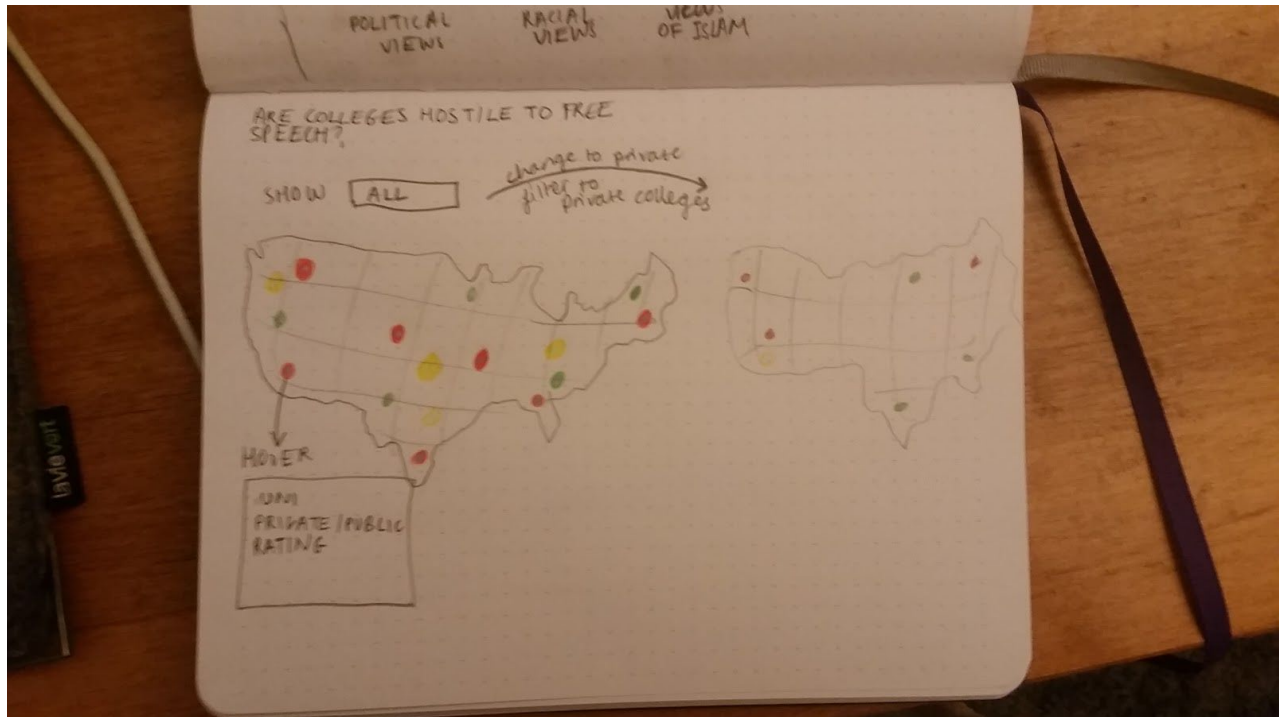 POLITICAL
VIEWS
RACIAL
VIEWS
VIEWS
OF ISLAM
ARE COLLEGES HOSTILE TO FREE
SPEECH?
SHOW
ALL
change to private
filter to
private colleges
HOVER
UNI
PRIVATE/PUBLIC
RATING
lavievert